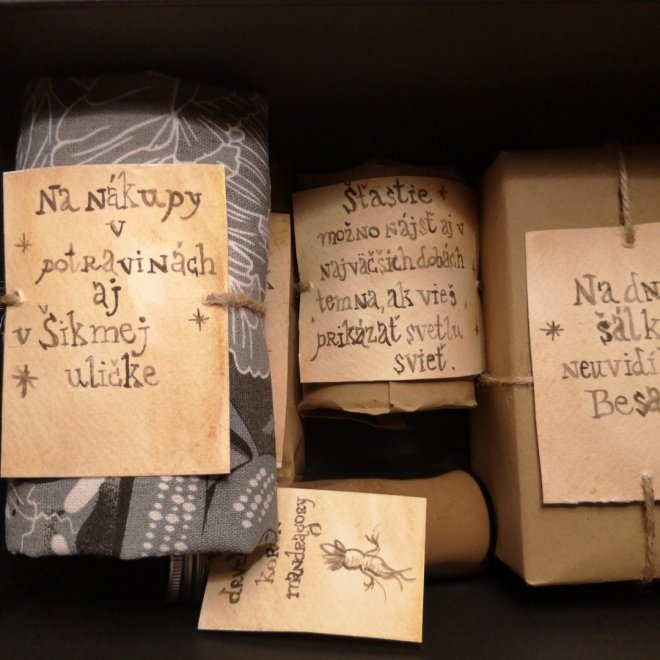 Na nákupy
v
potravinách
aj
v Šikmej
uličke
Šťastie
možno nájsť aj v
najväčších dobách
temna, ak vieš
prikázať svetlu
svieť.
Na dn
šálk
neuvidí
Besa
koreň
mandragory